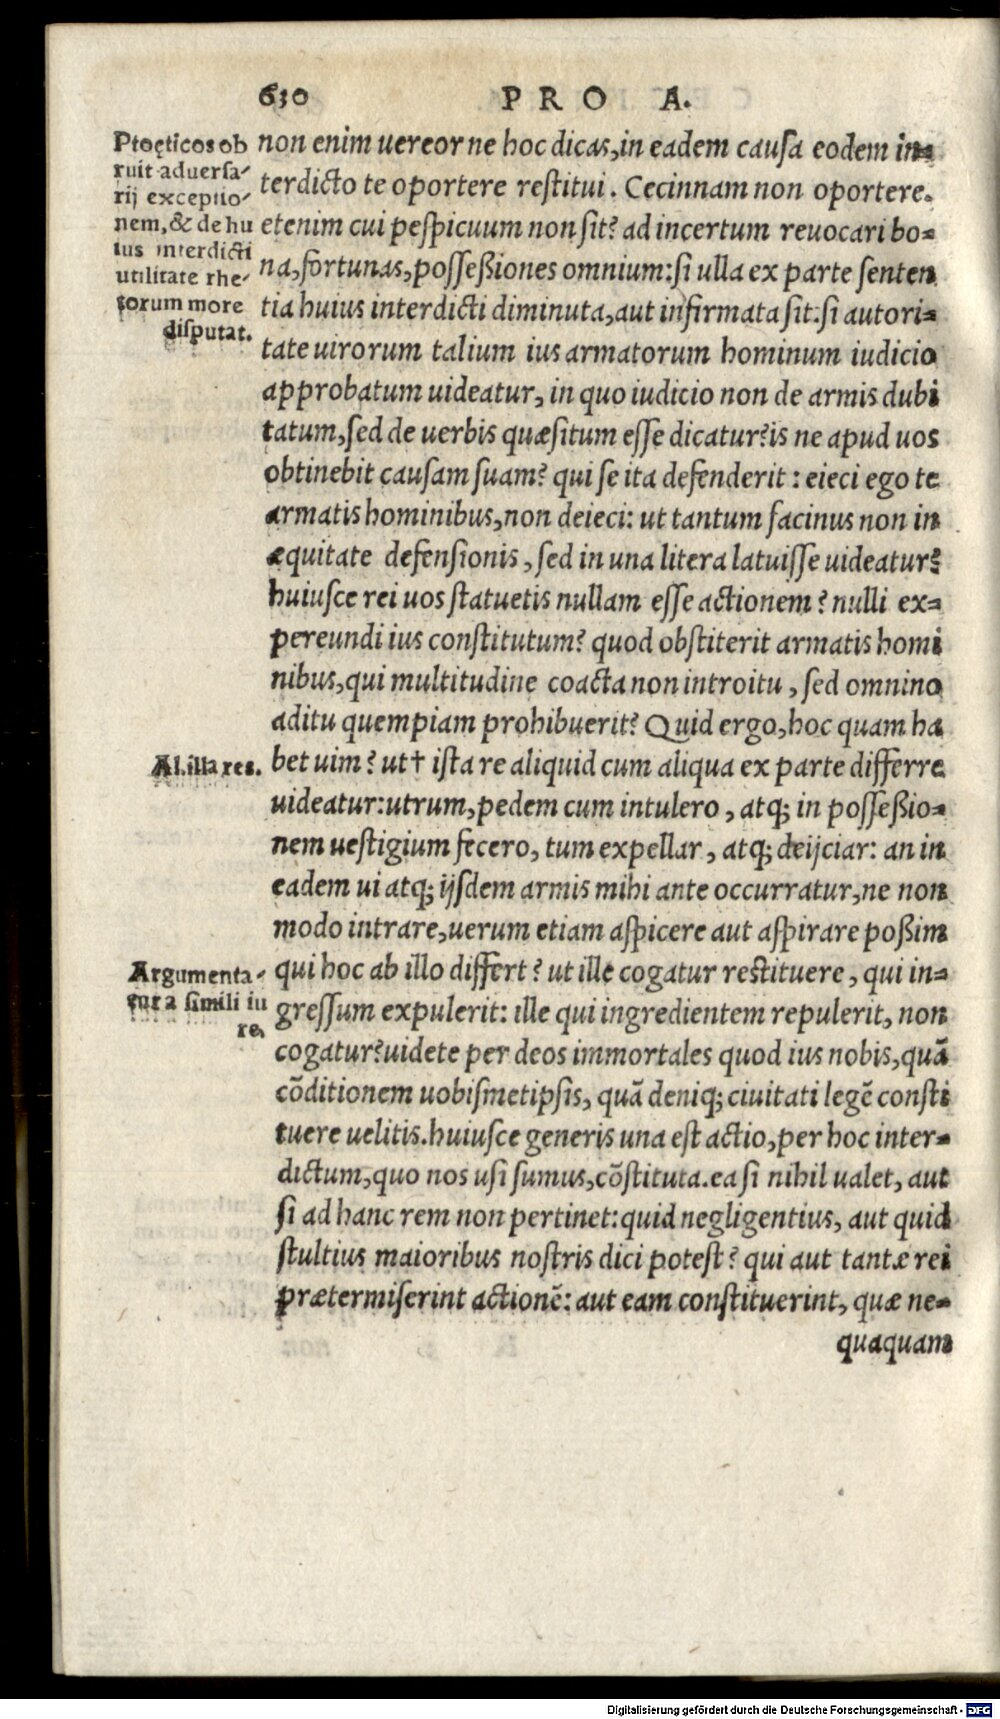 630 PRO A.
non enim uereor ne hoc dicas, in eadem causa eodem in-
terdicto te oportere restitui. Cecinnam non oportere.
etenim cui pespicuum non sit? ad incertum reuocari bo-
na, fortunas, possessiones omnium: si ulla ex parte senten
tia huius interdicti diminuta, aut infirmata sit: si autori-
tate uirorum talium ius armatorum hominum iudicio
approbatum uideatur, in quo iudicio non de armis dubi
tatum, sed de uerbis quæsitum esse dicatur? is ne apud uos
obtinebit causam suam? qui se ita defenderit: eieci ego te
armatis hominibus, non deieci: ut tantum facinus non in
æquitate defensionis, sed in una litera latuisse uideatur?
huiusce rei uos statuetis nullam esse actionem? nulli ex-
pereundi ius constitutum? quod obstiterit armatis homi
nibus, qui multitudine coacta non introitu, sed omnino
aditu quempiam prohibuerit? Quid ergo, hoc quam ha
bet uim? ut† ista re aliquid cum aliqua ex parte differre
uideatur: utrum, pedem cum intulero, atq; in possessio-
nem uestigium fecero, tum expellar, atq; deijciar: an in
eadem ui atq; ijsdem armis mihi ante occurratur, ne non
modo intrare, uerum etiam aspicere aut aspirare possim
qui hoc ab illo differt? ut ille cogatur restituere, qui in-
gressum expulerit: ille qui ingredientem repulerit, non
cogatur? uidete per deos immortales quod ius nobis, quã
cõditionem uobismetipsis, quã deniq; ciuitati legẽ consti
tuere uelitis. huiusce generis una est actio, per hoc inter-
dictum, quo nos usi sumus, cõstituta. ea si nihil ualet, aut
si ad hanc rem non pertinet: quid negligentius, aut quid
stultius maioribus nostris dici potest? qui aut tantæ rei
prætermiserint actionẽ: aut eam constituerint, quæ ne-
quaquam
Ptoęticos ob
ruit aduersa-
rij exceptio-
nem, & de hu
ius interdicti
utilitate rhe-
torum more
disputat.
Al. illa res.
Argumenta-
tur a simili iu
re.
Digitalisierung gefördert durch die Deutsche Forschungsgemeinschaft - DFG